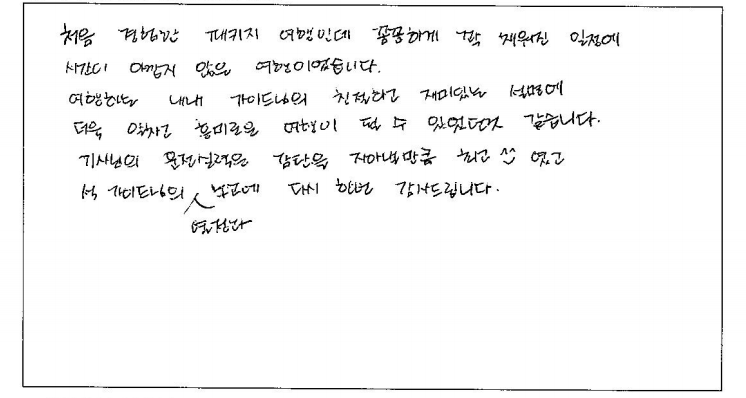 처음 경험한 패키지 여행인데 꼼꼼하게 꽉 채워진 일정에
시간이 아깝지 않은 여행이였습니다.
여행하는 내내 가이드님의 친절하고 재미있는 설명에
더욱 알차고 흥미로운 여행이 될 수 있었던것 같습니다.
기사님의 운전실력은 감탄을 자아낼만큼 최고 ^^ 였고
석 가이드님의 노고에 다시 한번 감사드립니다.
열정과